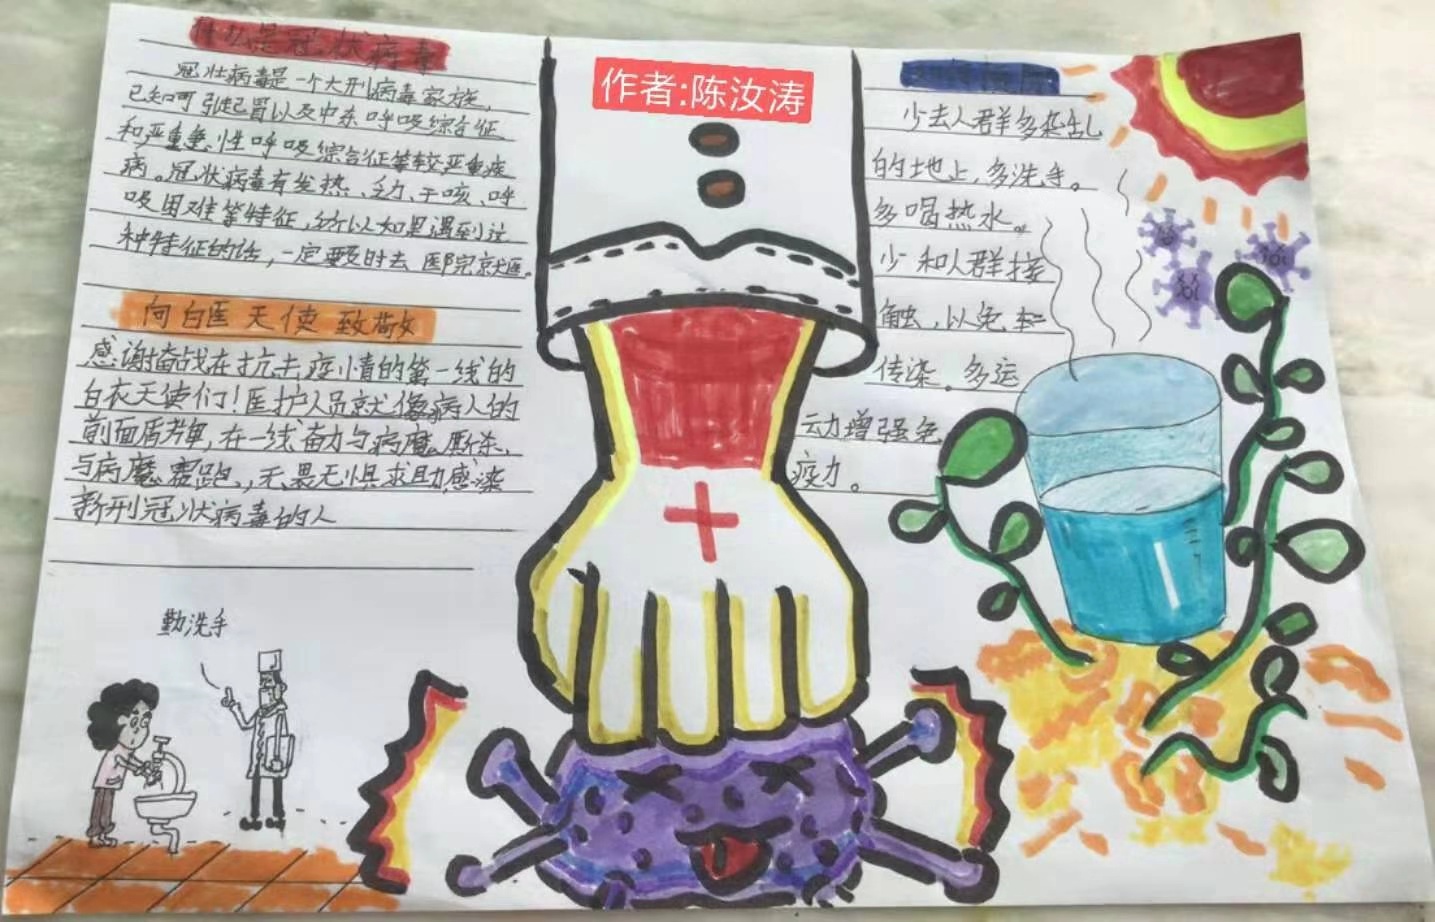 什么是冠状病毒
冠壮病毒是一个大刑病毒家族,
已知可引起冒以及中东呼吸综合征
和严重急性呼吸综合征等较严重疾
病。冠状病毒有发热、乏力、干咳、呼
吸困难等特征,所以如果遇到这
种特征的话,一定要及时去医院就医。
向白医天使致敬
感谢奋战在抗击疫情的第一线的
白衣天使们!医护人员就像病人的
前面盾牌,在一线奋力与病魔厮杀,
与病魔赛跑,无畏无惧求助感染
新刑冠状病毒的人
勤洗手
作者:陈汝涛
少去人群多杂乱
的地上,多洗手。
多喝热水。
少和人群接
触,以免
传染。多运
云力增强免
疫力。